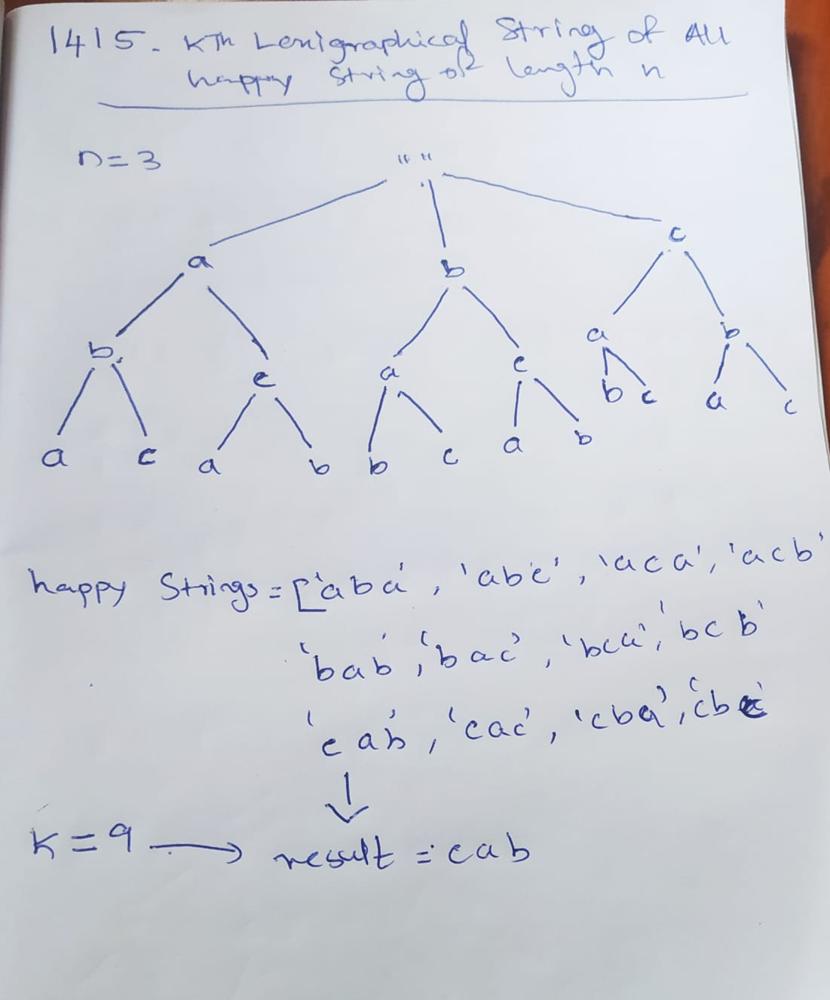 1415. Kth Lexigraphical String of All
happy String of length n
n=3
" "
a b c
b c a c a b
a c a b b c a b b c a c
happy Strings = ['aba', 'abc', 'aca', 'acb'
'bab', 'bac', 'bca', 'bcb'
'cab', 'cac', 'cba', 'cbc'
K=9 → result = cab